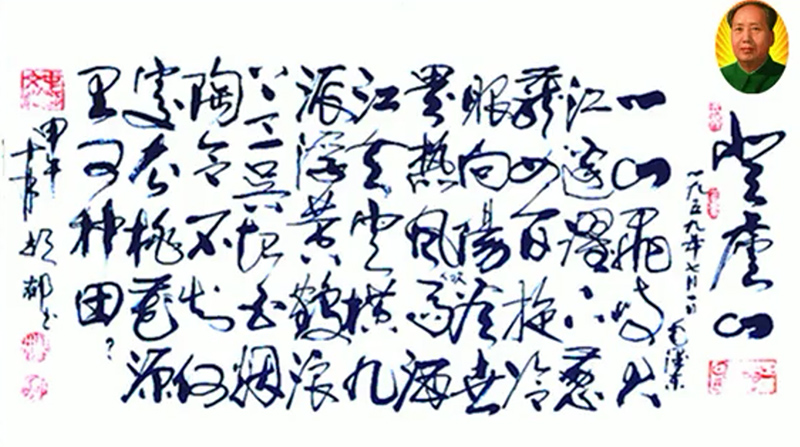 登庐山
一九五九年七月一日
毛泽东
一山飛峙大
江邊躍上葱
蘢四百旋冷
眼向陽看世
界热风吹雨洒
江天云横九
派浮黄鹤浪
下三吴起白烟
陶令不知何
處去桃花源
里可种田?
甲午